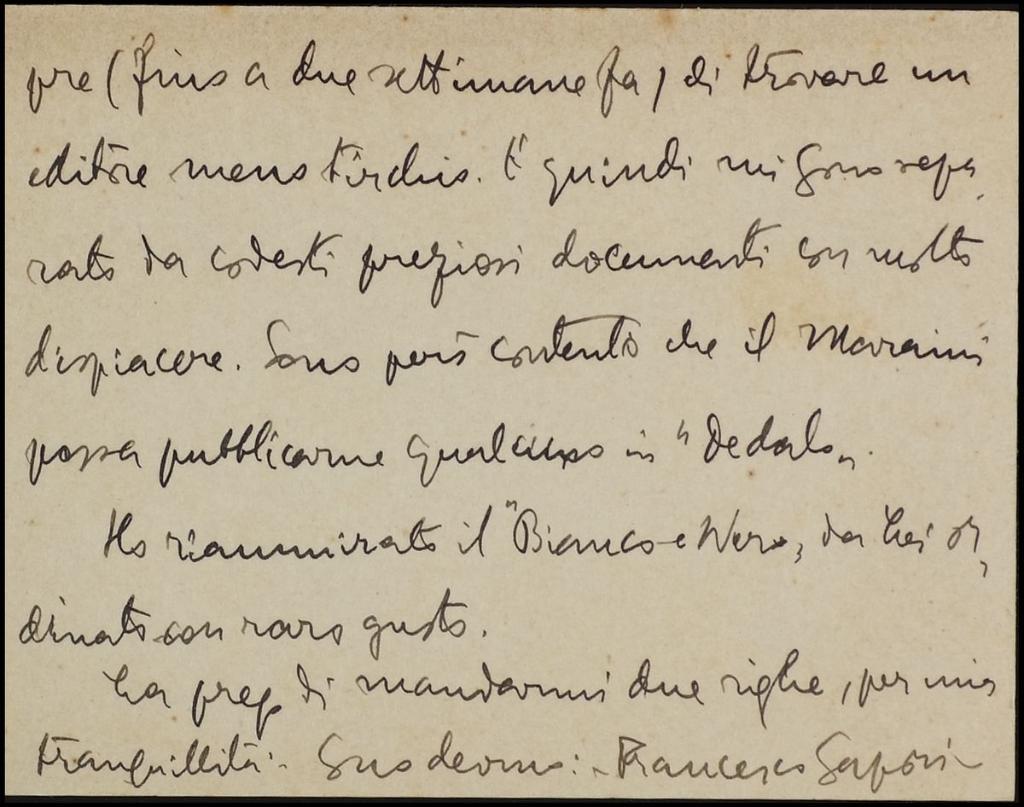 pre (fino a due settimane fa) di trovare un
editore meno tirchio. E quindi mi sono sepa,
rato da codesti preziosi documenti con molto
dispiacere. Sono però contento che il Maraini
possa pubblicarne qualcuno in "Dedalo„.
Ho riammirato il "Bianco e Nero„ da Lei or,
dinato con raro gusto.
La prego di mandarmi due righe, per mia
tranquillità:- Suo devmo:- Francesco Sapori-